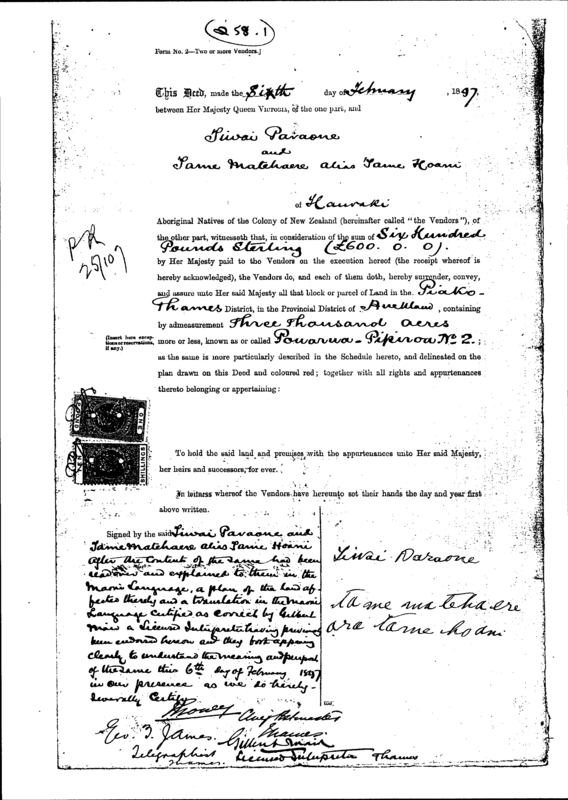 258.1
Form No. 2—Two or more Vendors.]
This Deed, made the Sixth day of February, 1897.
between Her Majesty Queen VICTORIA, of the one part, and
and
Tame Matehaere alias Tame Hoani
of Hauraki
Aboriginal Natives of the Colony of New Zealand (hereinafter called "the Vendors"), of
the other part, witnesseth that, in consideration of the sum of Six Hundred
Pounds Sterling (£600. 0. 0).
by Her Majesty paid to the Vendors on the execution hereof (the receipt whereof is
hereby acknowledged), the Vendors do, and each of them doth, hereby surrender, convey,
and assure unto Her said Majesty all that block or parcel of Land in the Piako-
Thames District, in the Provincial District of Auckland, containing
by admeasurement Three Thousand acres
(Insert here exceptions or reservations, if any.)
more or less, known as or called No 2.;
as the same is more particularly described in the Schedule hereto, and delineated on the
plan drawn on this Deed and coloured red; together with all rights and appurtenances
thereto belonging or appertaining:
25/10/
ONE
SHILLINGS
To hold the said land and premises with the appurtenances unto Her said Majesty,
her heirs and successors, for ever.
In witness whereof the Vendors have hereunto set their hands the day and year first
above written.
Signed by the said and
Tame Matehaere alias Tame Hoani
after the Content of the same had been
and explained to them in the
Maori Language, a plan of the land af-
fected thereby and a translation in the Maori
Language Certified as Correct by Gilbert
Mair a Licensed Interpreter having previously
been endorsed hereon and they both appearing
clearly to understand the meaning and purport
of the same this 6th day of February 1897
in our presence as we do hereby
severally Certify
tame matehaere
ara tame hoani
Geo. T. James.
Telegraphist
Thames.
Thames.
Gilbert Mair
Licensed Interpreter Thames